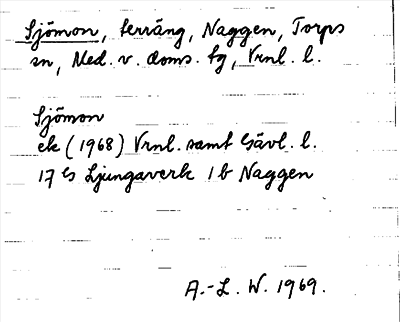 Sjömon, terräng, Naggen, Torps
sn, Med. v. doms. tg, Vrnl. l.
Sjömon
ek (1968) Vrnl. samt Gävl. l.
17 G Ljungaverk 1 b Naggen
A.-L. W. 1969.